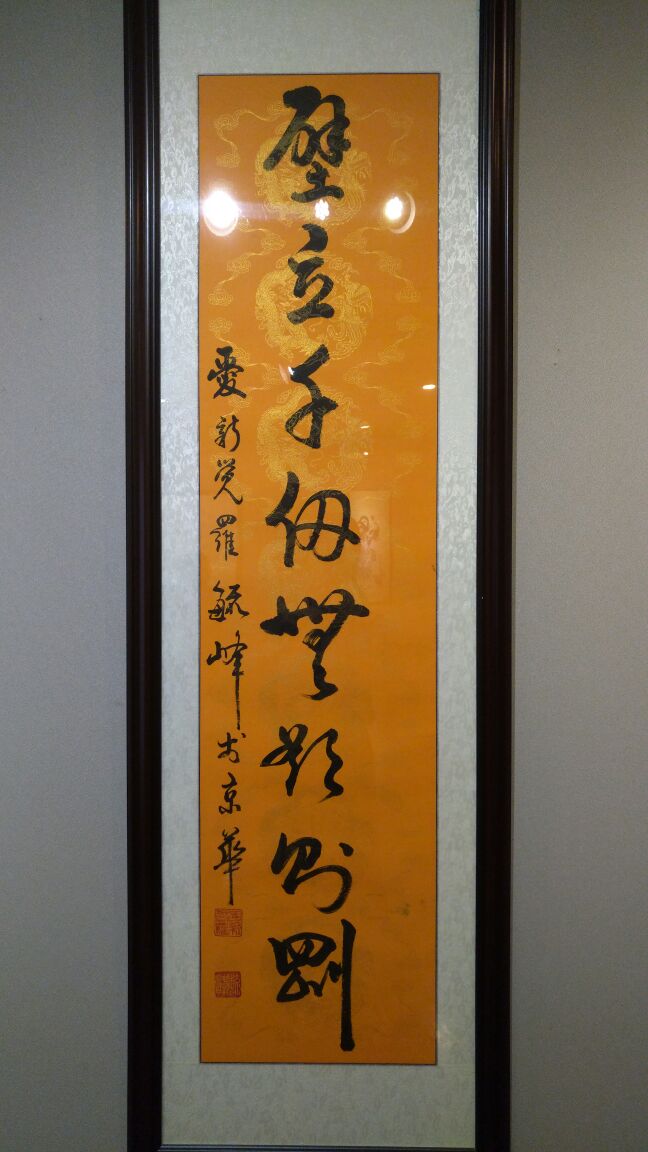 壁立千仞無欲則剛
愛新覺羅毓峰於京華